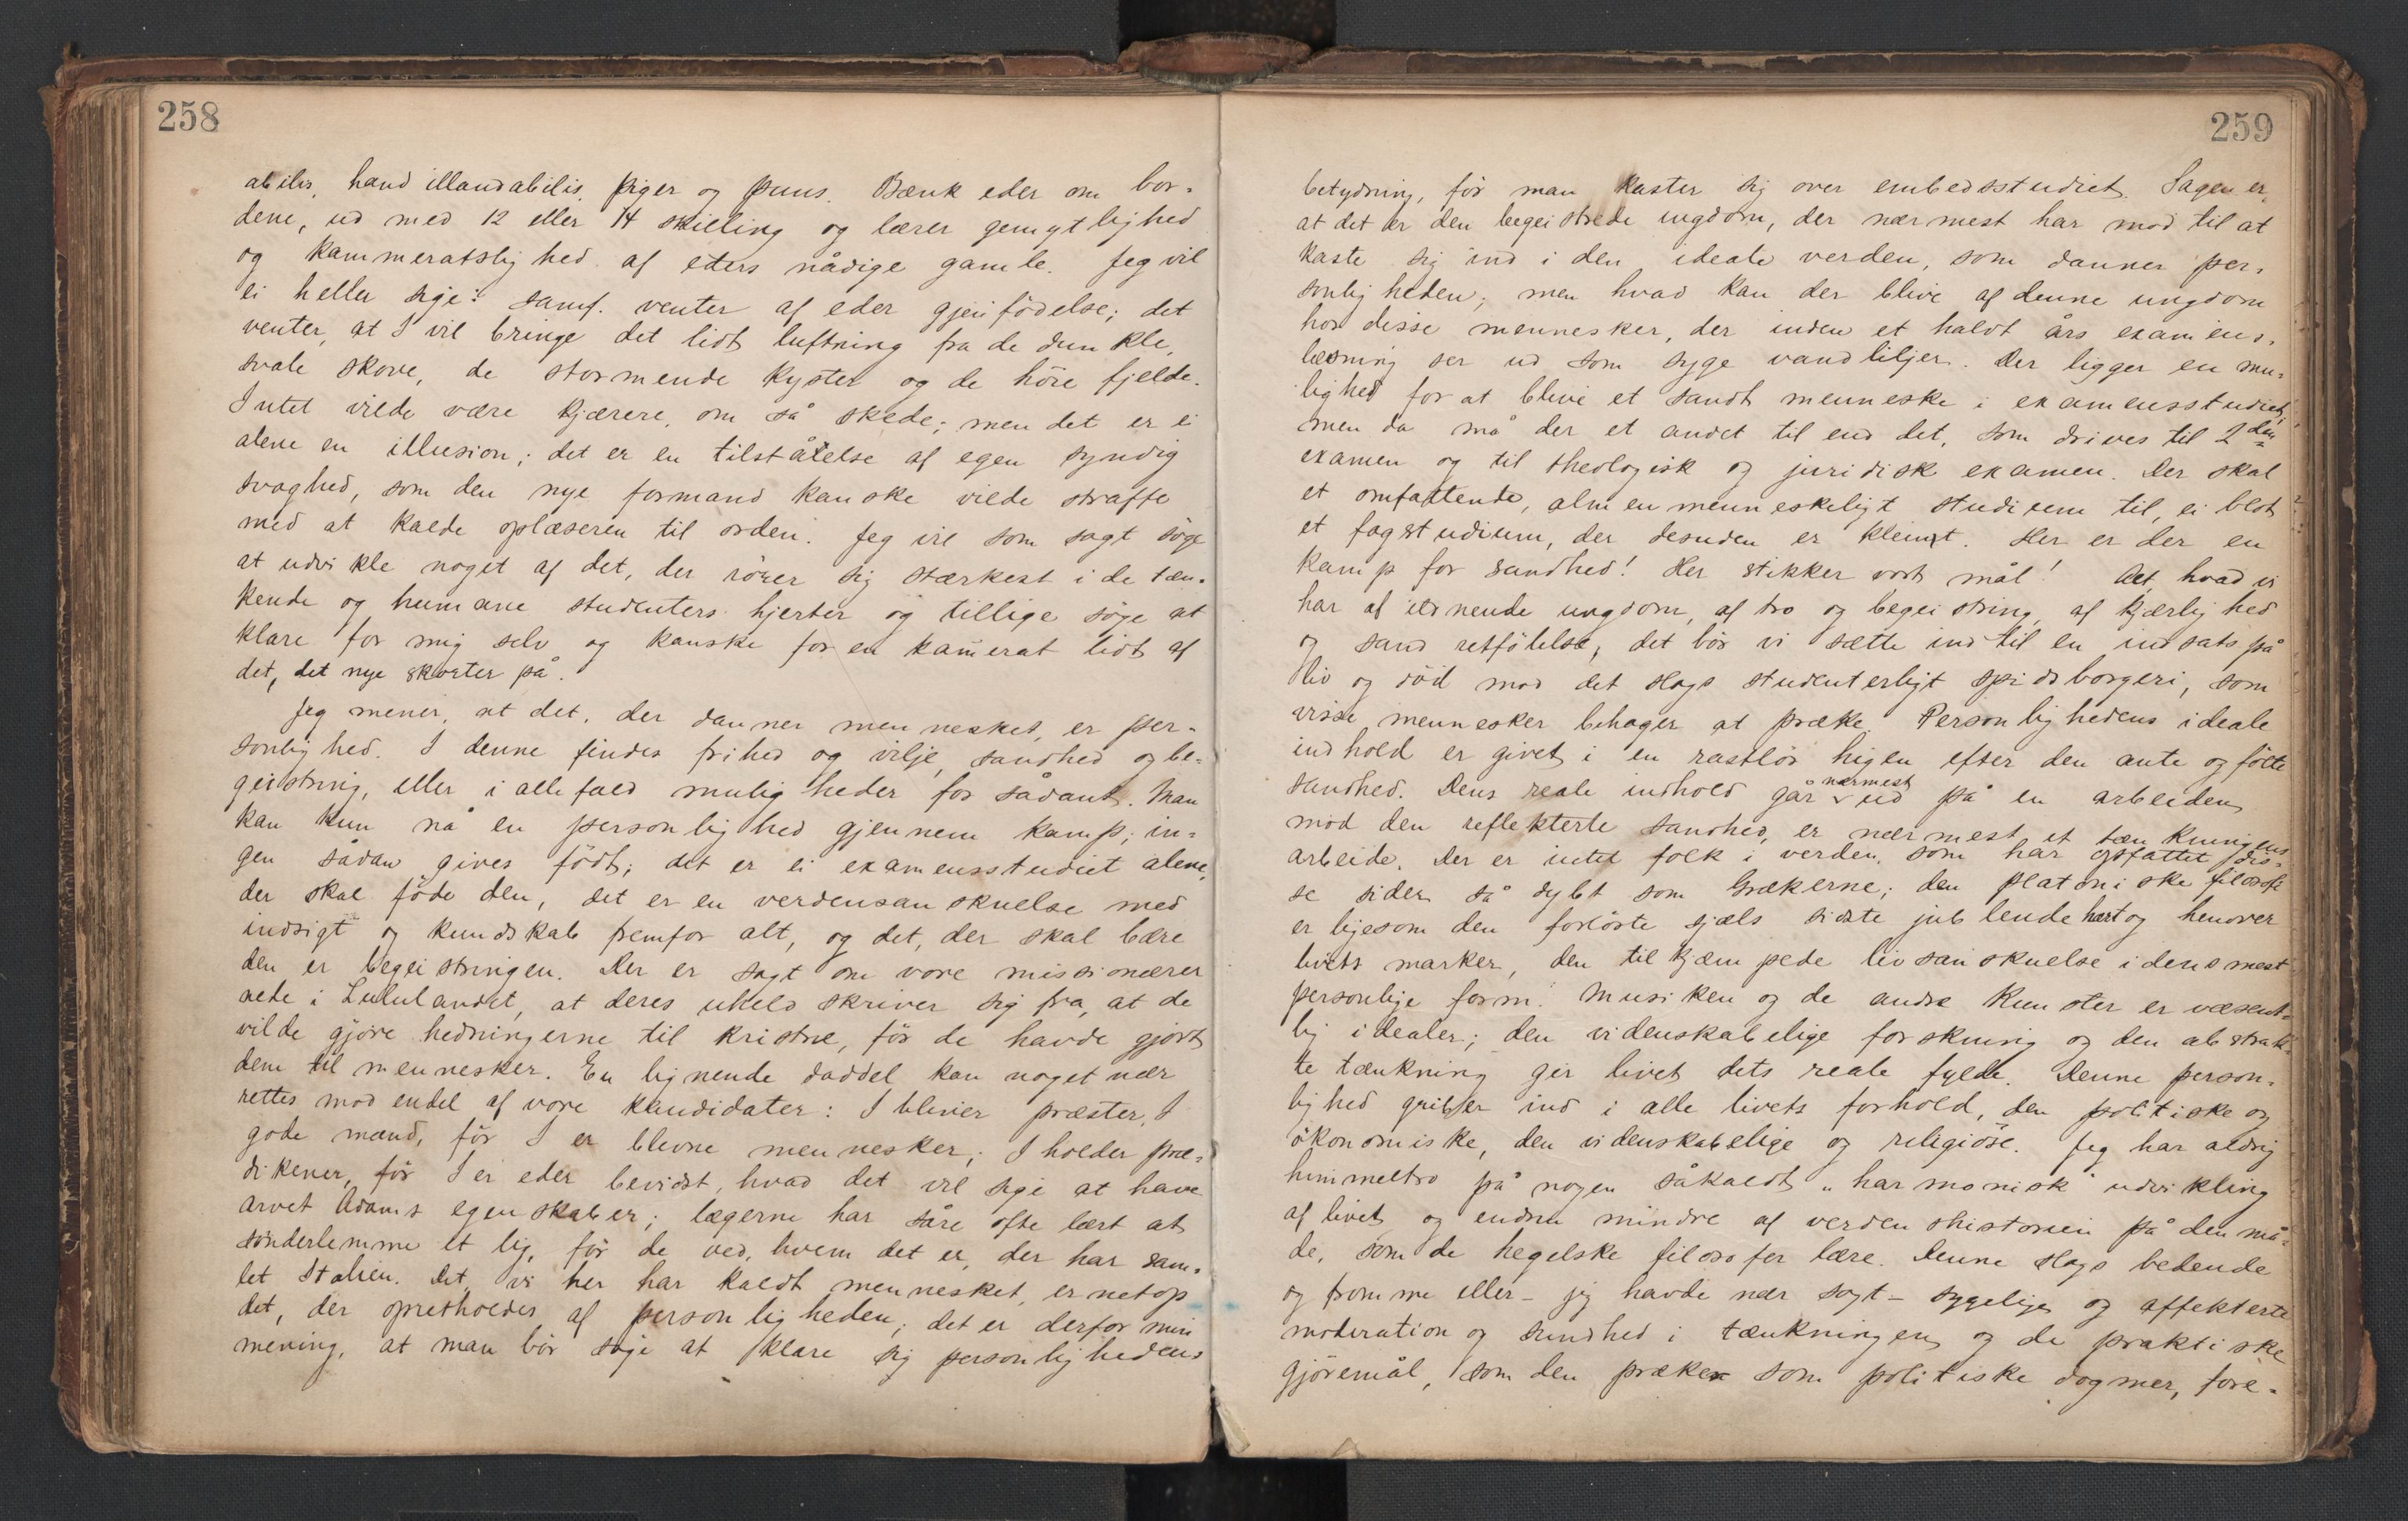 258
abilis, haud illaudabilis, piger og puns. Bænk eder om bor-
dene, ud med 12 eller 14 skilling og lærer gemytlighed
og kammeratslighed af eders nådige gamle. Jeg vil
ei heller sige: samf. venter af eder gjenfödelse; det
venter, at I vil bringe det lidt luftning fra de dunkle,
svale skove, de stormende kyster og de höie fjelde.
Intet vilde være kjærere, om så skede; men det er ei
alene en illusion; det er en tilståelse af egen syndig
svaghed, som den nye formand kanske vilde straffe
med at kalde oplæseren til orden. Jeg vil som sagt söge
at udvikle noget af det, der rörer sig stærkest i de tæn-
kende og humane studenters hjerter og tillige söge at
klare for mig selv og kanske for en kamerat lidt af
det, det nye skorter på.
Jeg mener, at det, der danner mennesket, er per-
sonlighed. I denne findes frihed og vilje, sandhed og be-
geistring, eller i allefald muligheder for sådant. Man
kan kun nå en personlighed gjennem kamp; in-
gen sådan gives födt; det er ei examensstudiet alene,
der skal föde den, det er en verdensanskuelse med
indsigt og kundskab fremfor alt, og det, der skal bære
den er begeistringen. Der er sagt om vore missionærer
nede i Zululandet, at deres uheld skriver sig fra, at de
vilde gjöre hedningerne til kristne, för de havde gjort
dem til mennesker. En lignende daddel kan noget nær
rettes mod endel af vore kandidater: I bliver præster, I
gode mænd, för I er blevne mennesker; I holder præ-
dikener, för I er eder bevidst, hvad det vil sige at have
arvet Adams egenskaber; lægerne har såre ofte lært at
sönderlemme et lig, för de ved, hvem det er, der har sam-
let Italien. Det, vi her har kaldt mennesket, er netop
det, der opretholdes af personligheden; det er derfor min
mening, at man bör söge at klare sig personlighedens
259
betydning, för man kaster sig over embedsstudiet. Sagen er,
at det er den begeistrede ungdom, der nærmest har mod til at
kaste sig ind i den ideale verden, som danner per-
sonligheden; men hvad kan der blive af denne ungdom
hos disse mennesker, der inden et haldt års examens-
læsning ser ud som syge vandliljer. Der ligger en mu-
lighed for at blive et sandt menneske i examensstudiet,
men da må der et andet til end det, som drives til 2den
examen og til theologisk og juridisk examen. Der skal
et omfattende, almenmenneskeligt studium til, ei blot
et fagstudium, der desuden er kleint. Her er der en
kamp for sandhed! Her stikker vort mål! Alt, hvad vi
har af ildnende ungdom, af tro og begeistring, af kjærlighed
og sand retfölelse, det bör vi sætte ind til en indsats på
liv og död mod det slags studenterligt spidsborgeri, som
visse mennesker behager at præke. Personlighedens ideale
indhold er givet i en rastlös higen efter den ante og fölte
sandhed. Dens reale indhold går nærmest ud på en arbeiden
mod den reflekterte sandhed, er nærmest et tænkningens
arbeide. Der er intet folk i verden, som har opfattet dis-
se sider så dybt som Grækerne; den platoniske filosofi
er ligesom den forlöste sjæls sidste jublende hærtog henover
livets marker, den tilkjæmpede livsanskuelse i dens mest
personlige form. Musiken og de andre kunster er væsent-
lig idealer; den videnskabelige forskning og den abstrak-
te tænkning gir livet dets reale fylde. Denne person-
lighed griber ind i alle livets forhold, den politiske og
ökonomiske, den videnskabelige og religiöse. Jeg har aldrig
himmeltro på nogen såkaldt "harmonisk" udvikling
af livet og endnu mindre af verdenshistorien på den må-
de, som de hegelske filosofer lære. Denne slags bedende
og fromme eller – jeg havde nær sagt – sygelige og affekterte
moderation og sundhed i tænkningen og de praktiske
gjöremål, som den præker som politiske dogmer, fore-